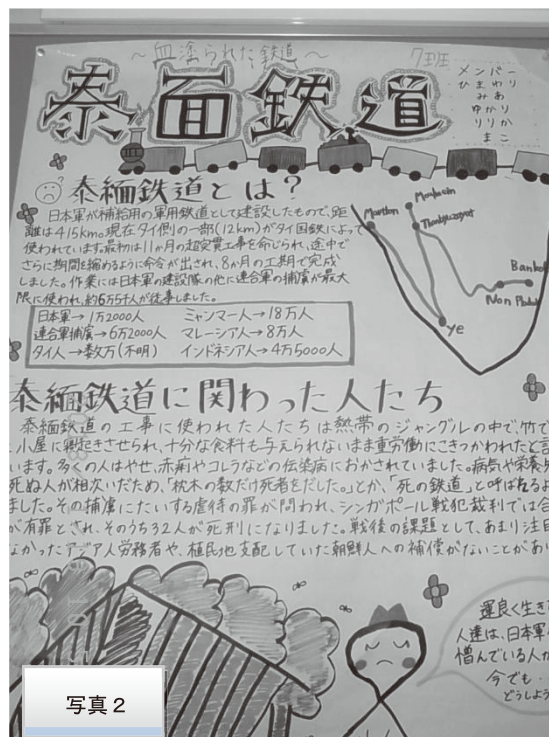 ～血塗られた鉄道～
7班
泰面鉄道
メンバー
ひまわり
みお
ゆかり
りりか
まこ
泰緬鉄道とは？
日本軍が補給用の軍用鉄道として建設したもので、距
離は415km。現在タイ側の一部(12km)がタイ国鉄によって
使われています。最初は11か月の超突貫工事を命じられ、途中で
さらに期間を縮めるように命令が出され、8か月の工期で完成
しました。作業には日本軍の建設隊の他に連合軍の捕虜が最大
限に使われ、約6万5千人が従事しました。
日本軍→1万2000人 ミャンマー人→18万人
連合軍捕虜→6万2000人 マレーシア人→8万人
タイ人→数万(不明) インドネシア人→4万5000人
Martban
Thanbyuzayat
Bank
Non Pladuk
ye
泰緬鉄道に関わった人たち
泰緬鉄道の工事に使われた人たちは熱帯のジャングルの中で、竹で
小屋に寝起きさせられ、十分な食料も与えられないまま重労働にこきつかわれたと言
います。多くの人はやせ、赤痢やコレラなどの伝染病におかされていました。病気や栄養
死ぬ人が相次いだため、「枕木の数だけ死者をだした。」とか、「死の鉄道」と呼ばれるよ
ました。その捕虜にたいする虐待の罪が問われ、シンガポール戦犯裁判では合
が有罪とされ、そのうち32人が死刑になりました。戦後の課題として、あまり注目
なかったアジア人労務者や、植民地支配していた朝鮮人への補償がないことがあ
運良く生き
人達は、日本軍
憎んでいる人が
今でも・
どうしよう
写真2